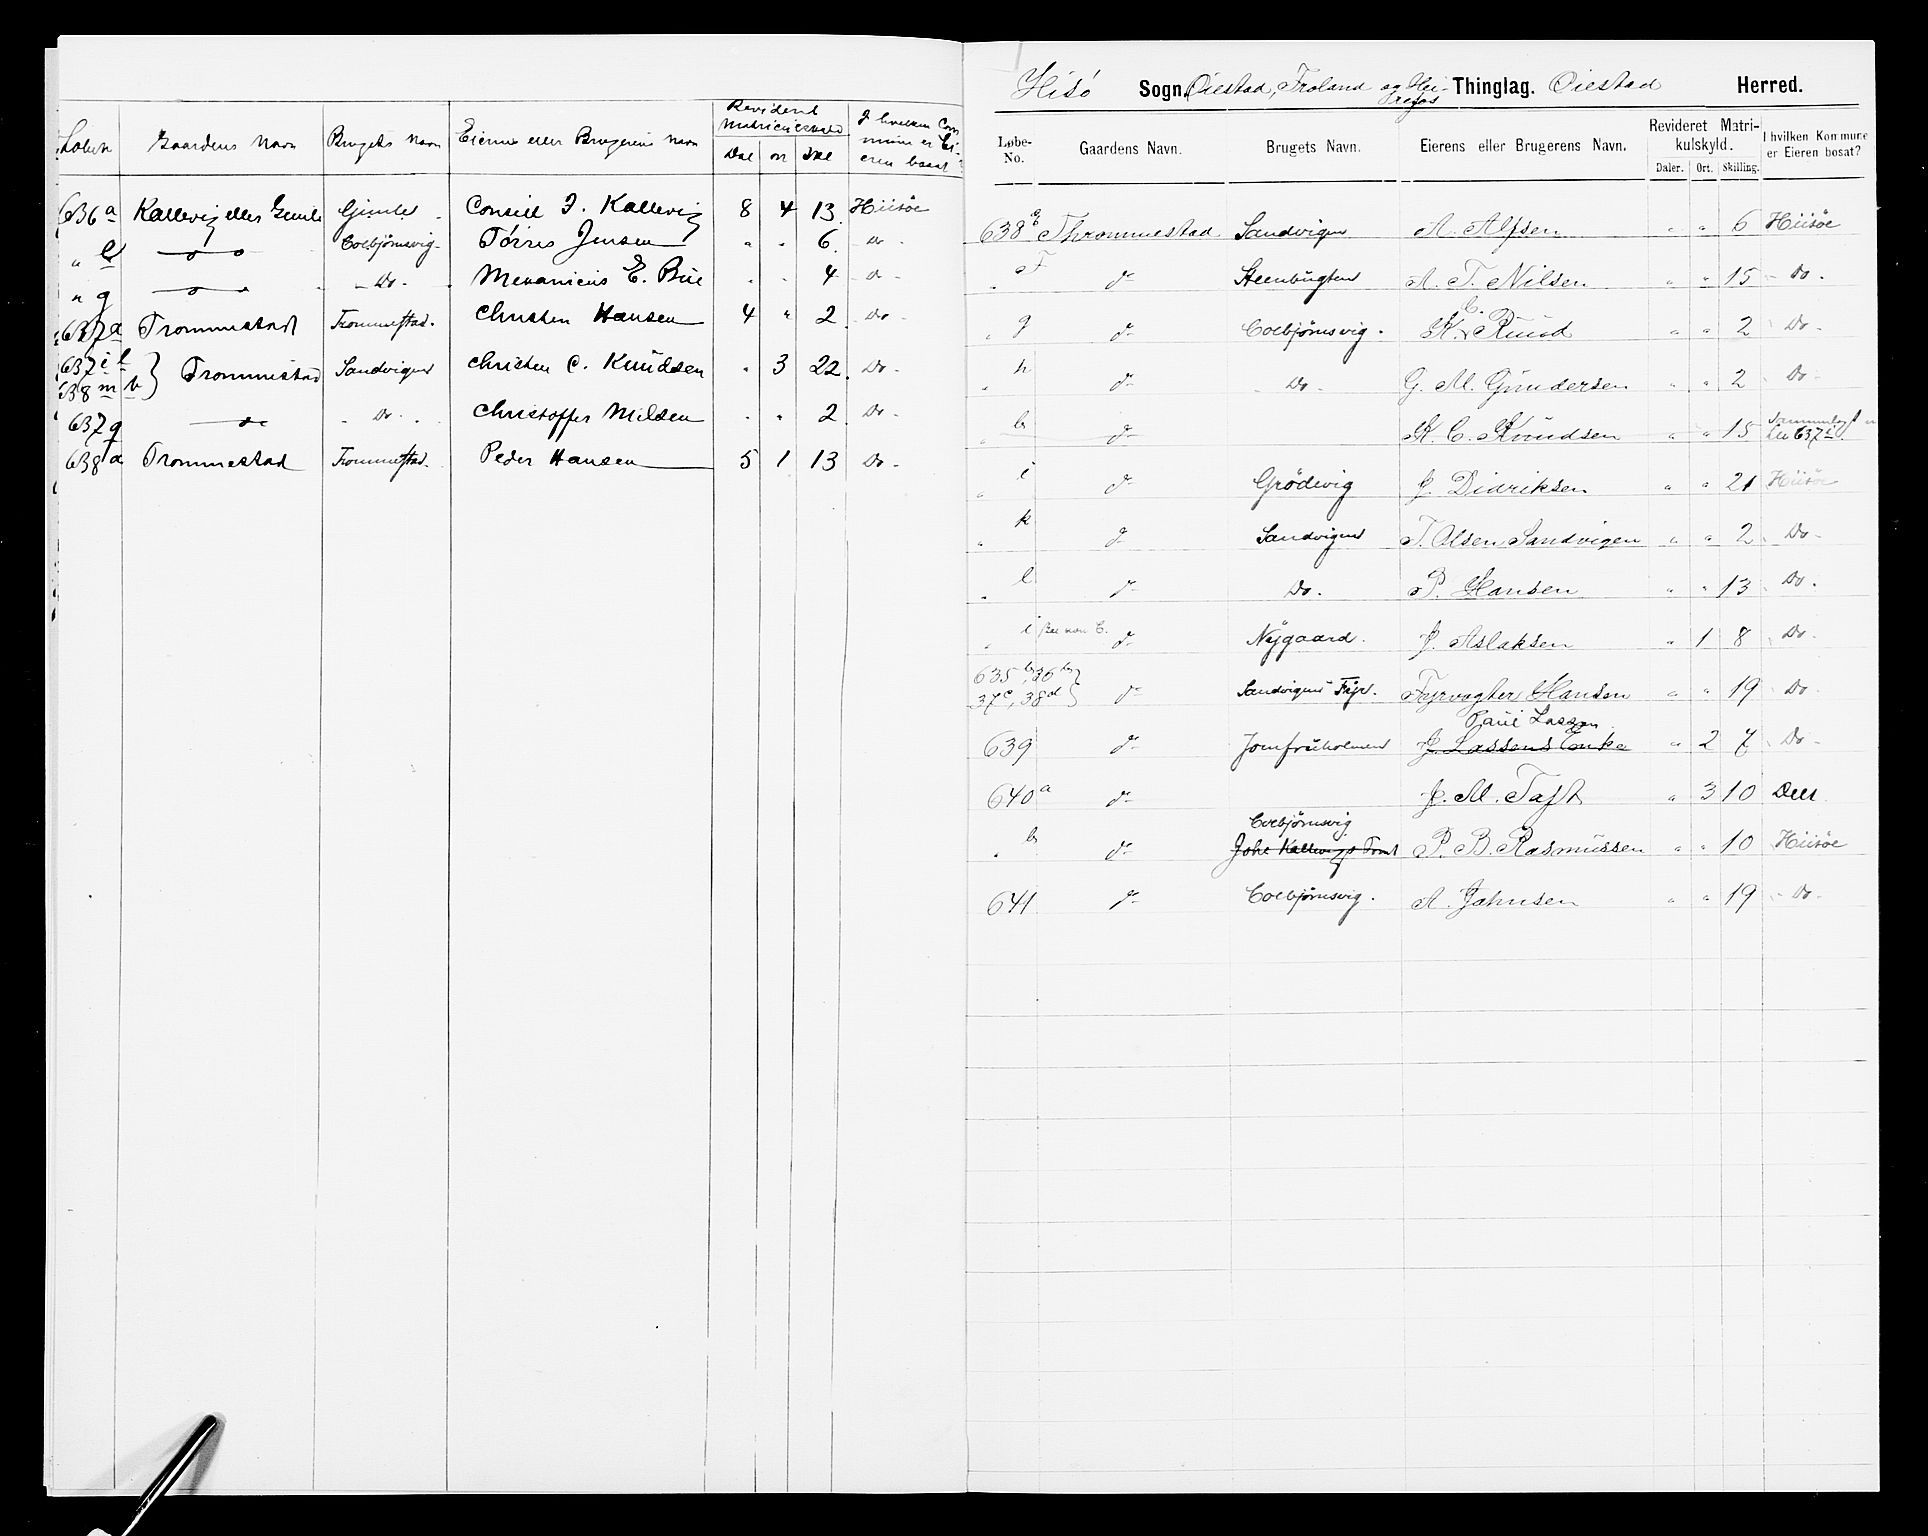 Løben Gaardens Navn Brugets Navn Eierens eller Brugerens Navn Revideret Matriculskyld Dal ort Skl I hvilken Commune er Eieren bosat
636a Kallevig eller Gimle Gimle Consul J. Kallevig 8 4 13 Hiisöe
" e — " — Colbjörnsvig Törris Jensen " " 6 Do
" g — " — Do Mekanicus E. Bie " " 4 Do
637a Trommestad Trommestad Christen Hansen 4 " 2 Do
637 i l
638 m b } Trommestad Sandvigen Christen C. Knudsen " 3 22 Do
637q — " — Do Christoffer Nilsen " " 2 Do
638a Trommestad Trommestad Peder Hansen 5 1 13 Do
Hisö Sogn. Öiestad, Froland og Thinglag. Öiestad Herred.
Løbe-No. Gaardens Navn. Brugets Navn. Eierens eller Brugerens Navn. Revideret Matrikulskyld. Daler. Ort. Skilling. I hvilken Kommune er Eieren bosat?
638e Thrommestad Sandvigen A. Alfsen " " 6 Hiisöe
" f do Steenbugten A. T. Nilsen " " 15 Do
" g do Colbjörnsvig K. E. Ruud " " 2 Do
" h do Do G. M. Gundersen " " 2 Do
" b do K. C. Knudsen " " 15 Sammenlagt m Ln 637i
" i do Grödevig J. Didriksen " " 21 Hiisöe
" k do Sandvigen T. Olsen Sandvigen " " 2 Do
" l do Do. P. Hansen " " 13 Do.
" i do Nygaard. J. Aslaksen " 1 8 Do
635b, 36b
37c, 38d } do Sandvigens Fyr. Fyrvogter Hansen " " 19 Do
Paul Lassen
639 do Jomfruholmen J. Lassens Enke " 2 7 Do
640a do J. M. Taft " 3 10
Colbjörnsvig
" b do Johs Kallevigs Tomt P. B. Rasmussen " " 10 Hiisöe
641 do Colbjörnsvig. A. Jahnsen " " 19 Do